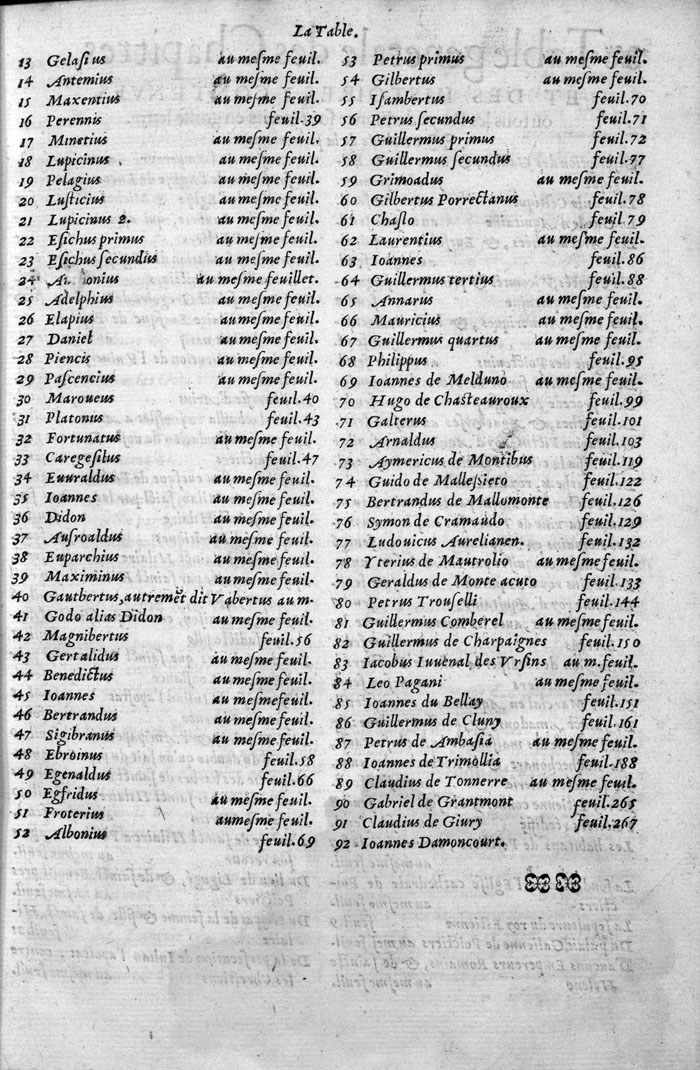 La Table.
13 Gelasius au mesme feuil.
14 Antemius au mesme feuil.
15 Maxentius au mesme feuil.
16 Perennis feuil.39
17 Minetius au mesme feuil.
18 Lupicinus au mesme feuil.
19 Pelagius au mesme feuil.
20 Lusticius au mesme feuil.
21 Lupicinus 2. au mesme feuil.
22 Esichus primus au mesme feuil.
23 Esichus secundus au mesme feuil.
24 au mesme feuillet.
25 Adelphius au mesme feuil.
26 Elapius au mesme feuil.
27 Daniel au mesme feuil.
28 Piencis au mesme feuil.
29 Pascencius au mesme feuil.
30 Maroueus feuil.40
31 Platonus feuil.43
32 Fortunatus au mesme feuil.
33 Caregesilus feuil.47
34 Euuraldus au mesme feuil.
35 Ioannes au mesme feuil.
36 Didon au mesme feuil.
37 Ausroaldus au mesme feuil.
38 Euparchius au mesme feuil.
39 Maximinus au mesme feuil.
40 Gautbertus, autremēt dit Vabertus au m.
41 Godo alias Didon au mesme feuil.
42 Magnibertus feuil.56
43 Gertalidus au mesme feuil.
44 Benedictus au mesme feuil.
45 Ioannes au mesme feuil.
46 Bertrandus au mesme feuil.
47 Sigibranus au mesme feuil.
48 Ebroinus feuil.58
49 Egenaldus feuil.66
50 Egfridus au mesme feuil.
51 Froterius au mesme feuil.
52 Albonius feuil.69
53 Petrus primus au mesme feuil.
54 Gilbertus au mesme feuil.
55 Isambertus feuil.70
56 Petrus secundus feuil.71
57 Guillermus primus feuil.72
58 Guillermus secundus feuil.77
59 Grimoadus au mesme feuil.
60 Gilbertus Porrectanus feuil.78
61 Chaslo feuil.79
62 Laurentius au mesme feuil.
63 Ioannes feuil.86
64 Guillermus tertius feuil.88
65 Annarus au mesme feuil.
66 Mauricius au mesme feuil.
67 Guillermus quartus au mesme feuil.
68 Philippus feuil.95
69 Ioannes de Melduno au mesme feuil.
70 Hugo de Chasteauroux feuil.99
71 Galterus feuil.101
72 Arnaldus feuil.103
73 Aymericus de Montibus feuil.119
74 Guido de Mallessieto feuil.122
75 Bertrandus de Mallomonte feuil.126
76 Symon de Cramaudo feuil.129
77 Ludouicus Aurelianen. feuil.132
78 Yterius de Mautrolio au mesme feuil.
79 Geraldus de Monte acuto feuil.133
80 Petrus Trouselli feuil.144
81 Guillermus Comberel au mesme feuil.
82 Guillermus de Charpaignes feuil.150
83 Iacobus Iuuenal des Vrsins au m.feuil.
84 Leo Pagani au mesme feuil.
85 Ioannes du Bellay feuil.151
86 Guillermus de Cluny feuil.161
87 Petrus de Ambasia au mesme feuil.
88 Ioannes de Trimollia feuil.188
89 Claudius de Tonnerre au mesme feuil.
90 Gabriel de Grantmont feuil.265
91 Claudius de Giury feuil.267
92 Ioannes Damoncourt.